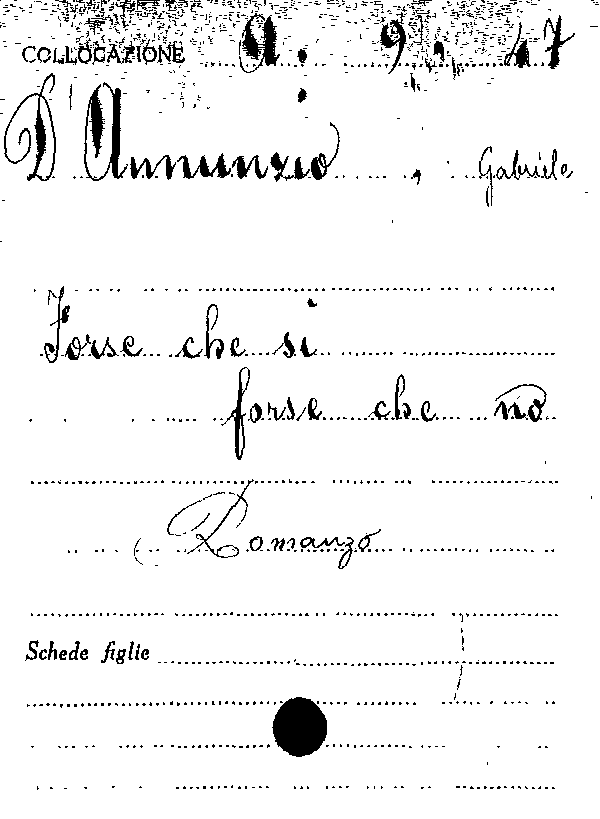 COLLOCAZIONE A. 9. 47
D'Annunzio, Gabriele
Forse che si
forse che no
Romanzo
Schede figlie